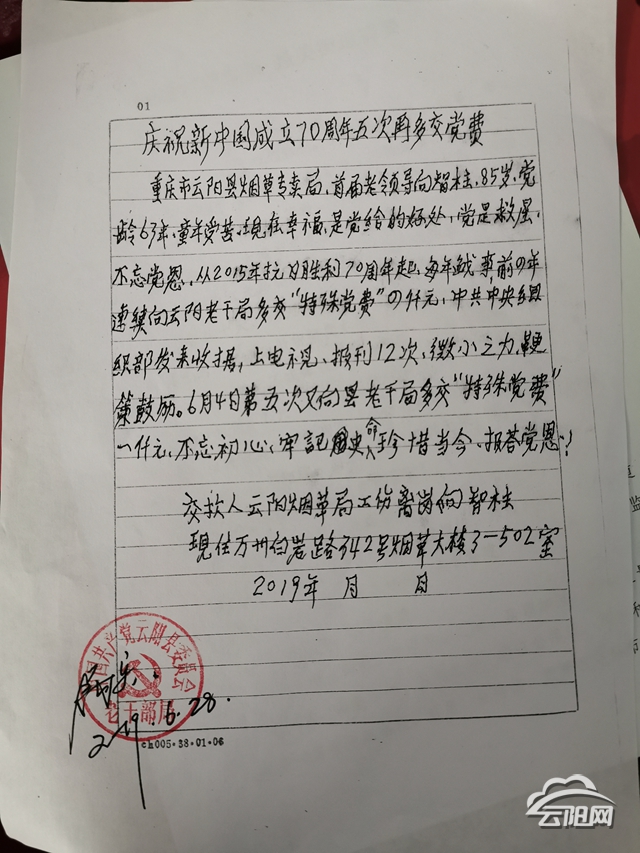 01
庆祝新中国成立70周年五次再多交党费
重庆市云阳县烟草专卖局,首届老领导向智桂,85岁,党
龄63年,童年受苦,现在幸福,是党给的好处,党是救星,
不忘党恩,从2015年抗日胜利70周年起,每年 事前四年
连续向云阳老干局多交“特殊党费”四仟元,中共中央组
织部发来收据,上电视、报刊12次,微小之力,鞭
策鼓励。6月4日第五次又向县老干局多交“特殊党费”
一仟元,不忘初心,牢记 命,珍惜当今,报答党恩!
交款人云阳烟草局工伤离岗向智桂
现住万州白岩路342号烟草大楼3-502室
2019年 月 日
中国共产党云阳县委员会
老干部局
2019.6.28.
ch005.38.01.06
云阳网